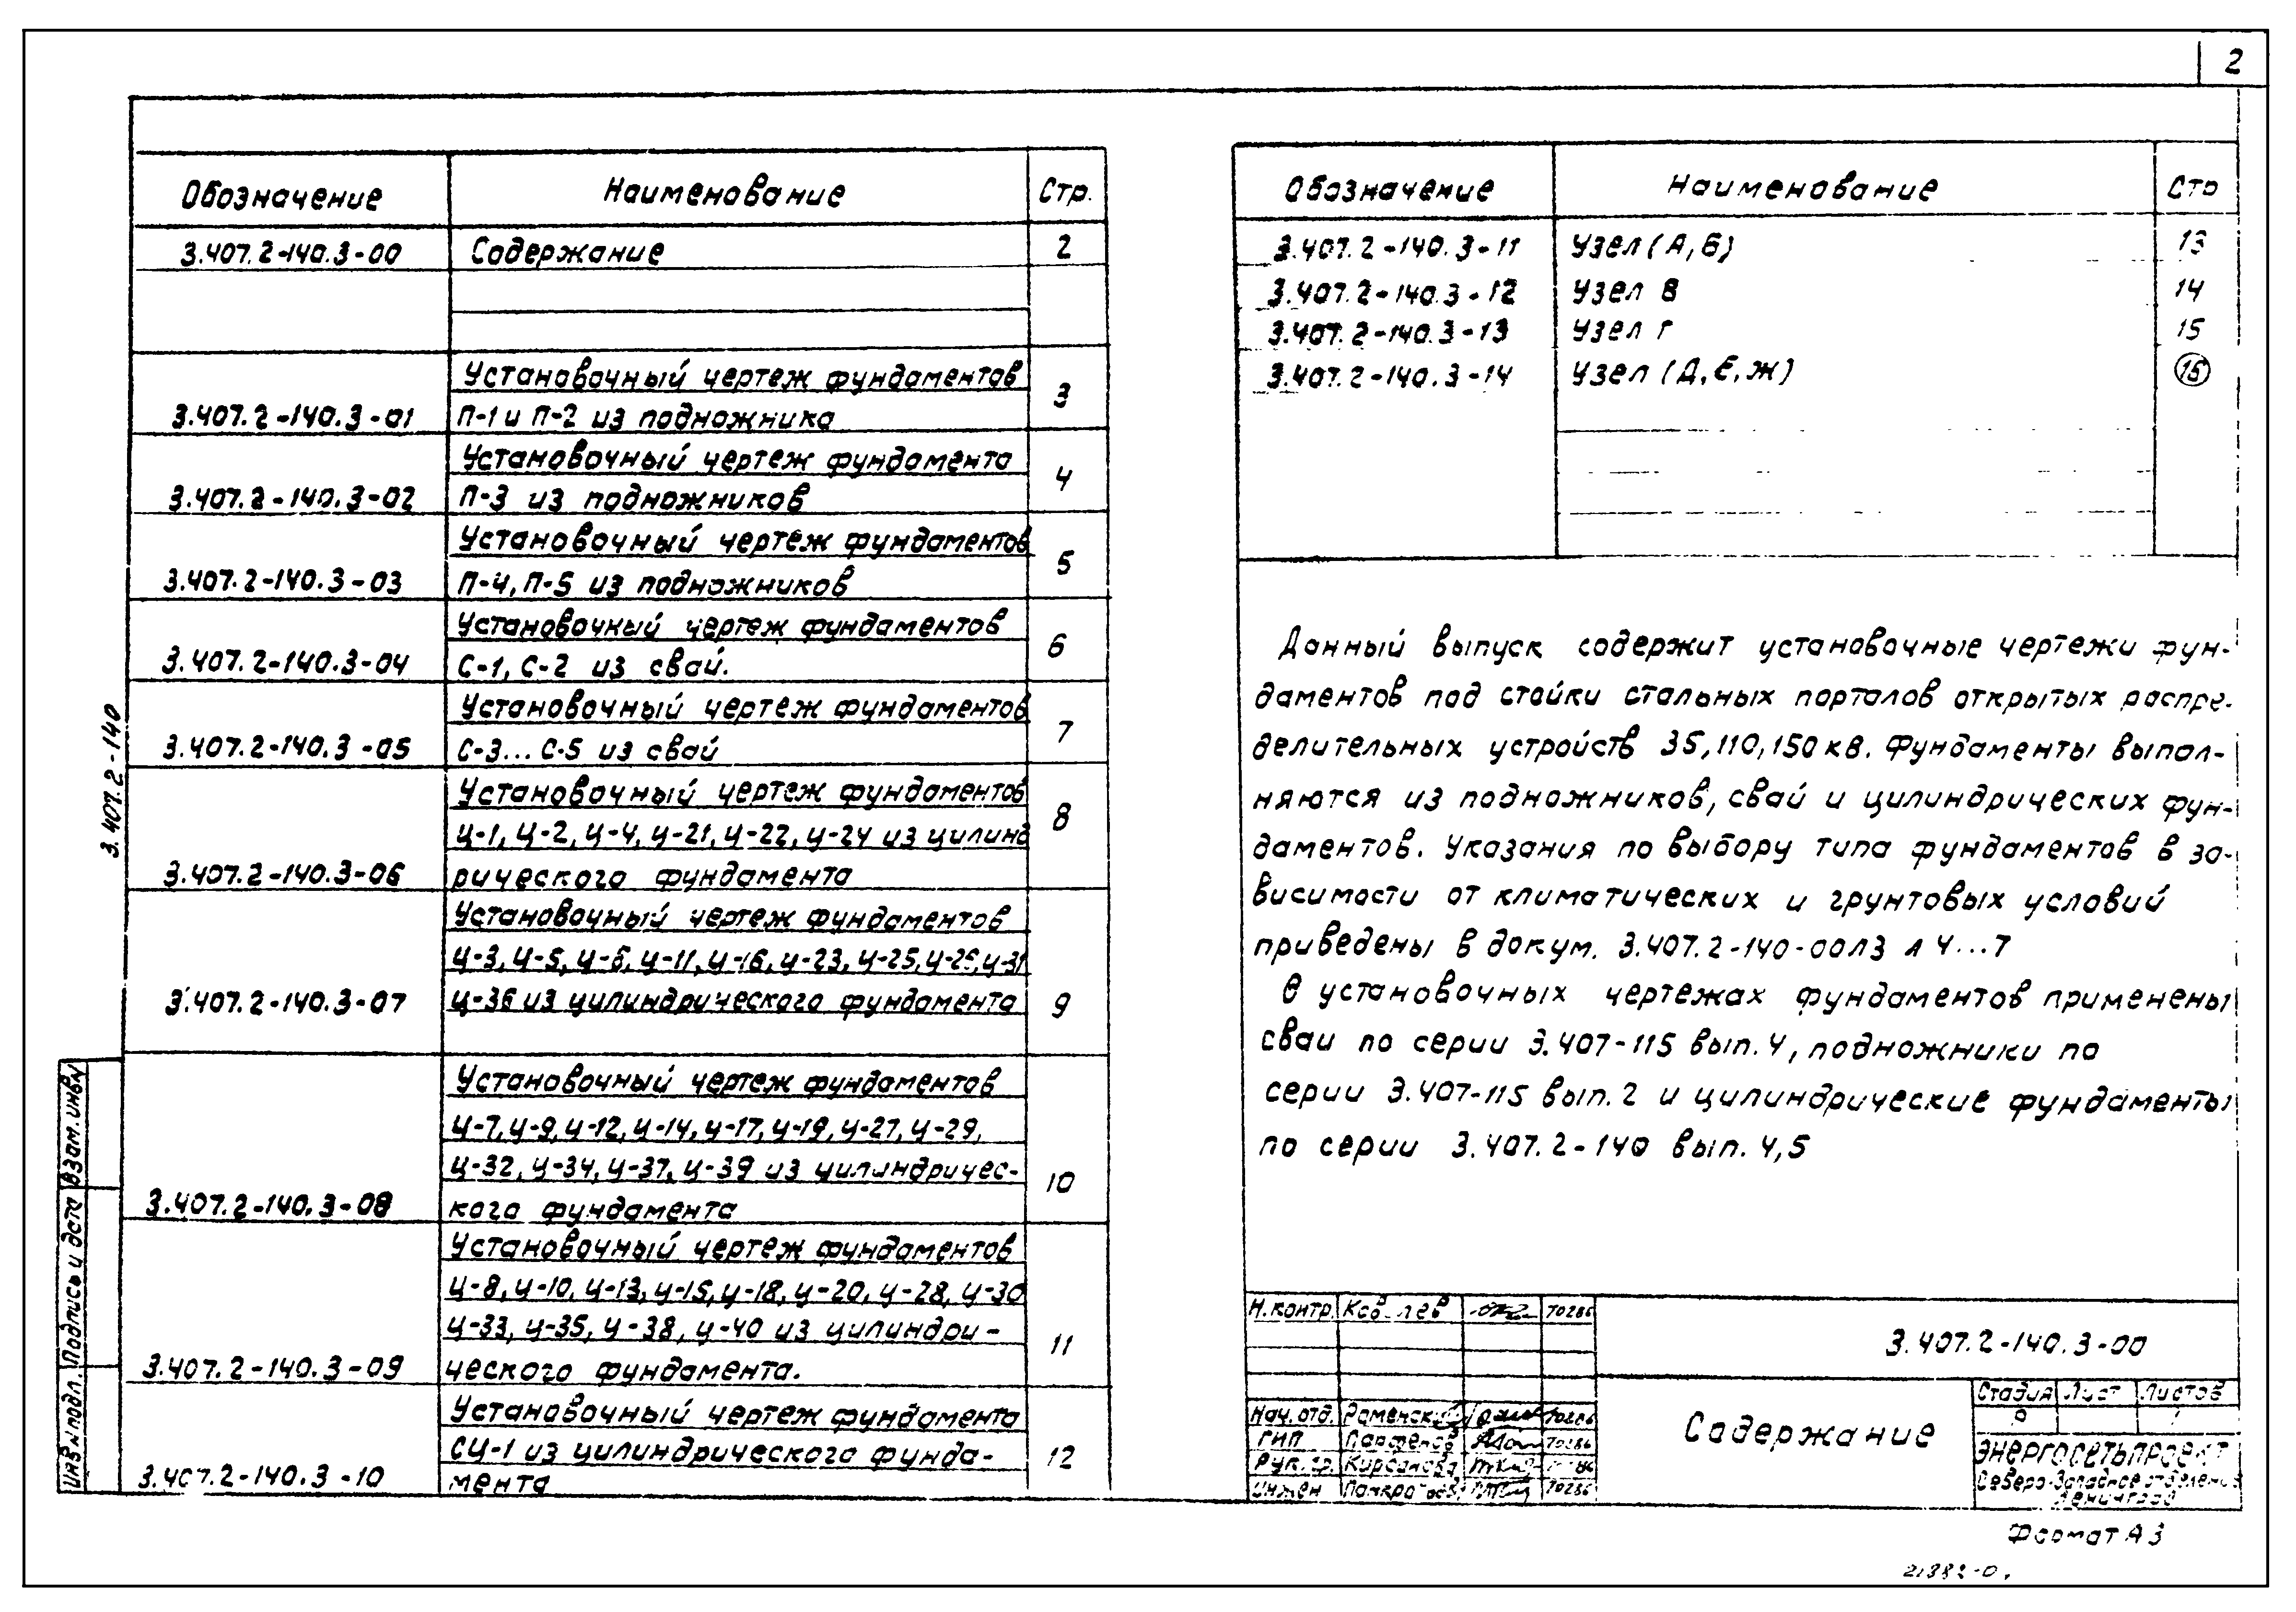 2
Обозначение Наименование Стр.
3.407.2-140.3-00 Содержание 2
Установочный чертеж фундаментов
3.407.2-140.3-01 П-1 и П-2 из подножника 3
Установочный чертеж фундамента
3.407.2-140.3-02 П-3 из подножников 4
Установочный чертеж фундаментов
3.407.2-140.3-03 П-4, П-5 из подножников 5
Установочный чертеж фундаментов
3.407.2-140.3-04 С-1, С-2 из свай. 6
Установочный чертеж фундаментов
3.407.2-140.3-05 С-3...С-5 из свай 7
Установочный чертеж фундаментов
Ц-1, Ц-2, Ц-4, Ц-21, Ц-22, Ц-24 из цилинд 8
3.407.2-140.3-06 рического фундамента
Установочный чертеж фундаментов
Ц-3, Ц-5, Ц-6, Ц-11, Ц-16, Ц-23, Ц-25, Ц-26, Ц-31
3.407.2-140.3-07 Ц-36 из цилиндрического фундамента 9
Установочный чертеж фундаментов
Ц-7, Ц-9, Ц-12, Ц-14, Ц-17, Ц-19, Ц-27, Ц-29,
Ц-32, Ц-34, Ц-37, Ц-39 из цилиндричес- 10
3.407.2-140.3-08 кого фундамента
Установочный чертеж фундаментов
Ц-8, Ц-10, Ц-13, Ц-15, Ц-18, Ц-20, Ц-28, Ц-30
Ц-33, Ц-35, Ц-38, Ц-40 из цилиндри- 11
3.407.2-140.3-09 ческого фундамента.
Установочный чертеж фундамента
СЦ-1 из цилиндрического фунда- 12
3.407.2-140.3-10 мента
3.407.2-140
Взам. инв N
Подпись и дата
Инв N подл.
Обозначение Наименование Стр
3.407.2-140.3-11 Узел (А, Б) 13
3.407.2-140.3-12 Узел В 14
3.407.2-140.3-13 Узел Г 15
3.407.2-140.3-14 Узел (Д, Е, Ж) 16
Данный выпуск содержит установочные чертежи фун-
даментов под стойки стальных порталов открытых распре-
делительных устройств 35, 110, 150 кв. Фундаменты выпол-
няются из подножников, свай и цилиндрических фун-
даментов. Указания по выбору типа фундаментов в за-
висимости от климатических и грунтовых условий
приведены в докум. 3.407.2-140-00ПЗ л 4...7
В установочных чертежах фундаментов применены
сваи по серии 3.407-115 вып. 4, подножники по
серии 3.407-115 вып. 2 и цилиндрические фундаменты
по серии 3.407.2-140 вып. 4, 5
Н. контр. 70286
3.407.2-140.3-00
Содержание
Стадия Лист Листов
Р
Нач. отд. Раменский 70286
ГИП Парфенов 70286
Рук. гр. Кирсанова
Инжен 70286
ЭНЕРГОСЕТЬПРОЕКТ
Северо-Западное отделение
Ленинград
Формат А3